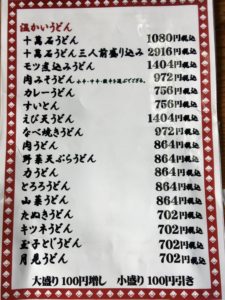 温かいうどん
十萬石うどん 1080円税込
十萬石うどん三人前盛り込み 2916円税込
モツ煮込みうどん 1404円税込
肉みそうどん 972円税込
カレーうどん 756円税込
すいとん 756円税込
えび天うどん 1404円税込
なべ焼きうどん 972円税込
肉うどん 864円税込
野菜天ぷらうどん 864円税込
力うどん 864円税込
とろろうどん 864円税込
山菜うどん 864円税込
たぬきうどん 702円税込
キツネうどん 702円税込
玉子とじうどん 702円税込
月見うどん 702円税込
大盛り 100円増し 小盛り 100円引き